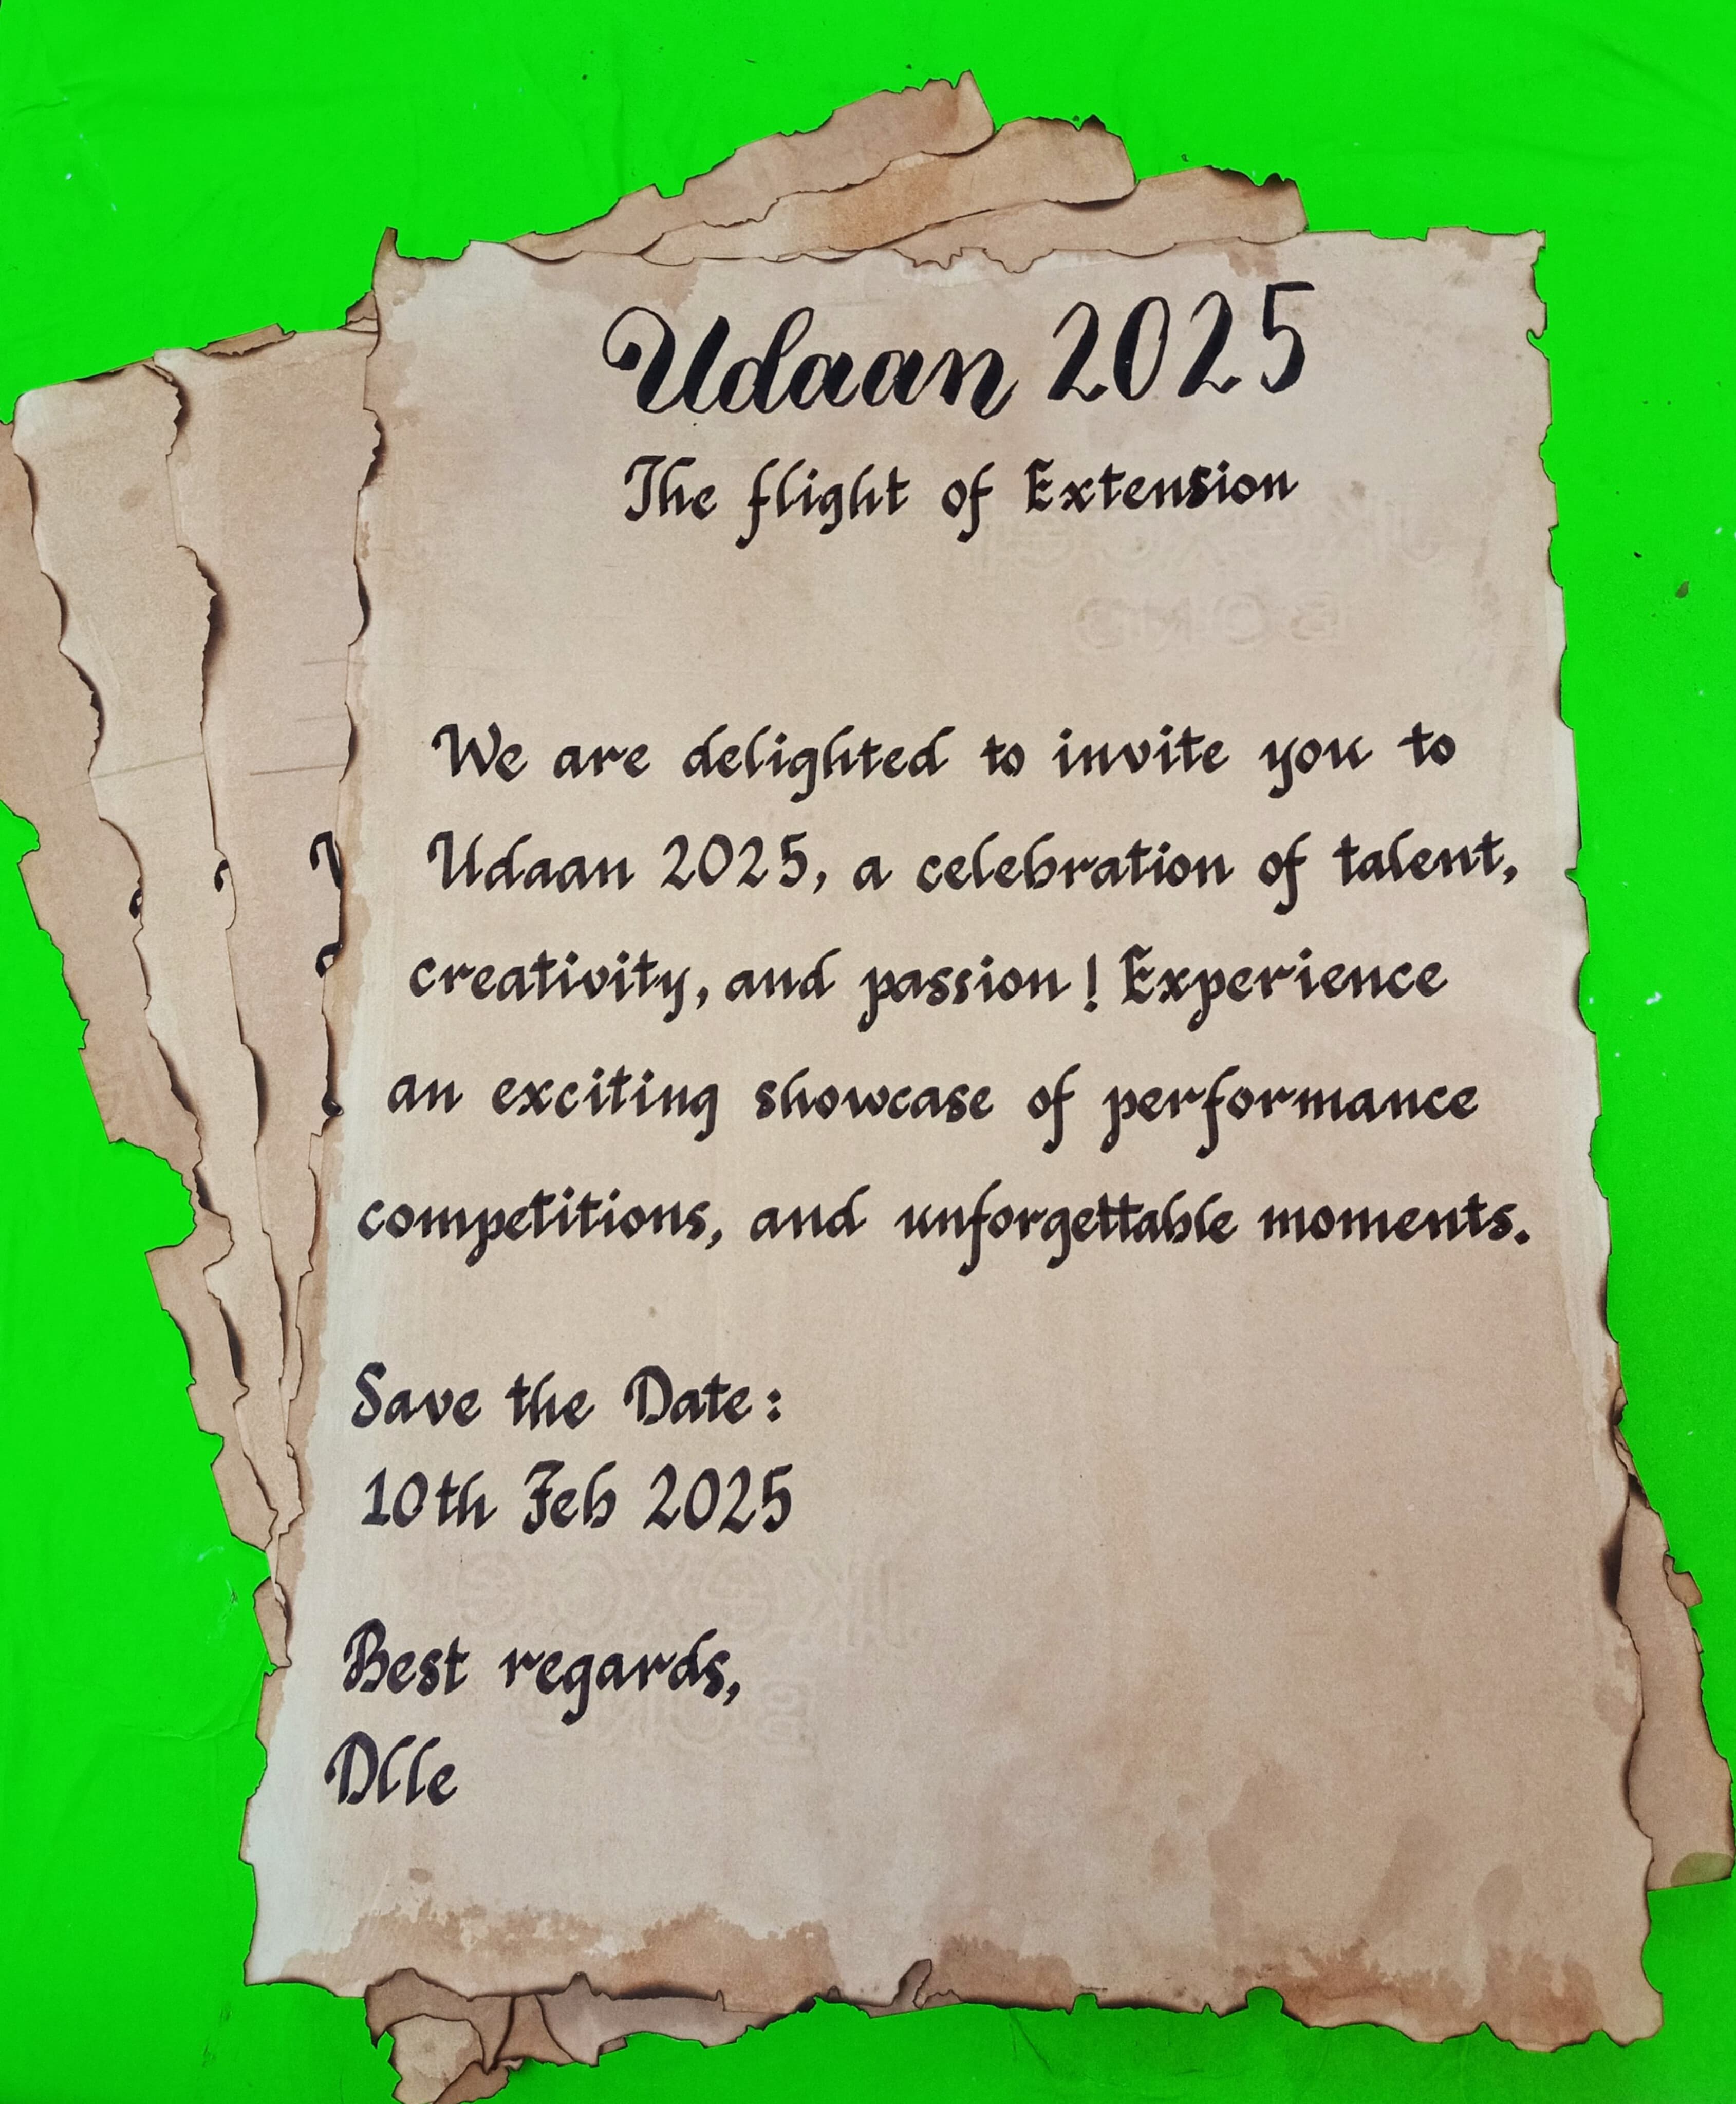 Udaan 2025
The flight of Extension
We are delighted to invite you to
Udaan 2025, a celebration of talent,
creativity, and passion! Experience
an exciting showcase of performance
competitions, and unforgettable moments.
Save the Date:
10th Feb 2025
Best regards,
Dlle